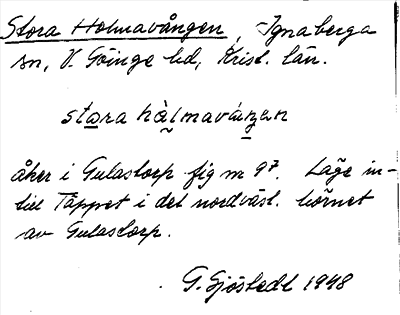 Stora Holmavången, Ignaberga
sn, V. Göinge hd, Krist. län.
stara hàlmaváŋen
åker i Gulastorp fig nr 97. Läge in-
till Täppet i det nordväst. hörnet
av Gulastorp.
G. Sjöstedt 1948